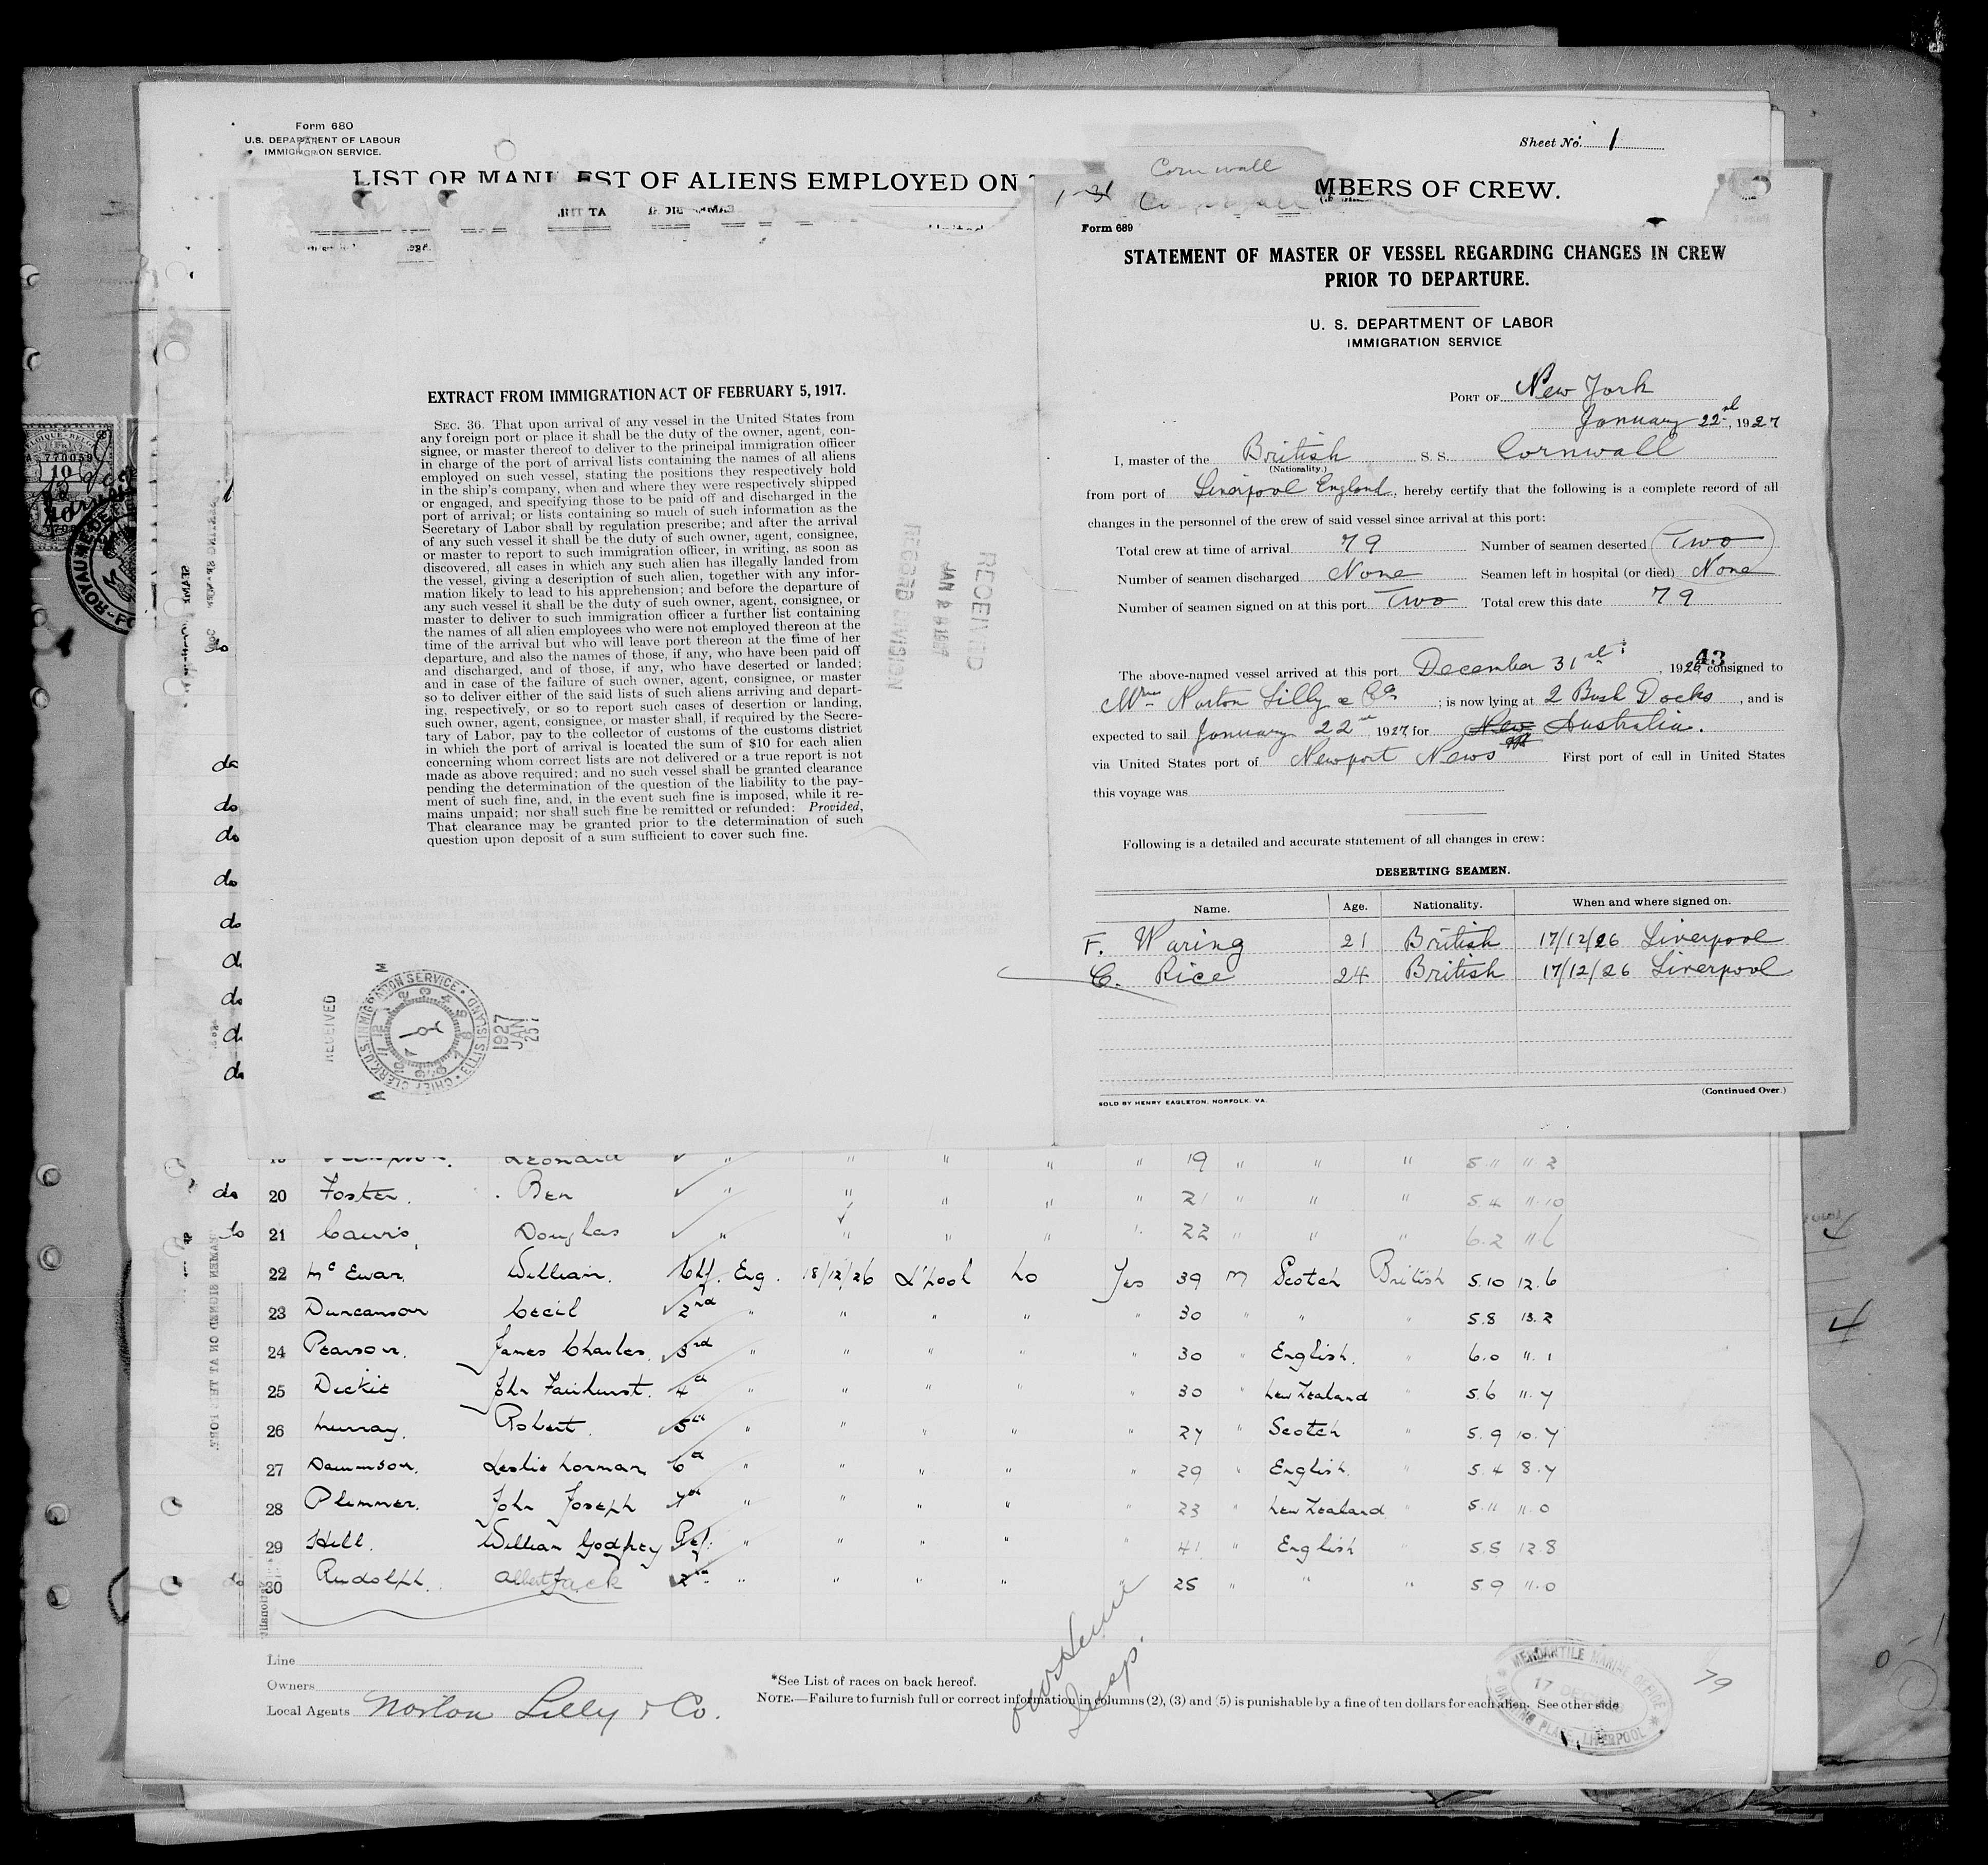 Form 680
U.S. DEPARTMENT OF LABOUR
IMMIGRATION SERVICE.
Sheet No. 1
LIST OR MANIFEST OF ALIENS EMPLOYED ON
MBERS OF CREW.
Cornwall
EXTRACT FROM IMMIGRATION ACT OF FEBRUARY 5, 1917.
SEC. 36. That upon arrival of any vessel in the United States from
any foreign port or place it shall be the duty of the owner, agent, con-
signee, or master thereof to deliver to the principal immigration officer
in charge of the port of arrival lists containing the names of all aliens
employed on such vessel, stating the positions they respectively hold
in the ship's company, when and where they were respectively shipped
or engaged, and specifying those to be paid off and discharged in the
port of arrival; or lists containing so much of such information as the
Secretary of Labor shall by regulation prescribe; and after the arrival
of any such vessel it shall be the duty of such owner, agent, consignee,
or master to report to such immigration officer, in writing, as soon as
discovered, all cases in which any such alien has illegally landed from
the vessel, giving a description of such alien, together with any infor-
mation likely to lead to his apprehension; and before the departure of
any such vessel it shall be the duty of such owner, agent, consignee, or
master to deliver to such immigration officer a further list containing
the names of all alien employees who were not employed thereon at the
time of the arrival but who will leave port thereon at the time of her
departure, and also the names of those, if any, who have been paid off
and discharged, and of those, if any, who have deserted or landed;
and in case of the failure of such owner, agent, consignee, or master
so to deliver either of the said lists of such aliens arriving and depart-
ing, respectively, or so to report such cases of desertion or landing,
such owner, agent, consignee, or master shall, if required by the Secre-
tary of Labor, pay to the collector of customs of the customs district
in which the port of arrival is located the sum of $10 for each alien
concerning whom correct lists are not delivered or a true report is not
made as above required; and no such vessel shall be granted clearance
pending the determination of the question of the liability to the pay-
ment of such fine, and, in the event such fine is imposed, while it re-
mains unpaid; nor shall such fine be remitted or refunded: Provided,
That clearance may be granted prior to the determination of such
question upon deposit of a sum sufficient to cover such fine.
RECEIVED
RECEIVED
CHIEF CLERK, U.S. IMMIGRATION SERVICE • ELLIS ISLAND
1927 JAN 25
Form 689
STATEMENT OF MASTER OF VESSEL REGARDING CHANGES IN CREW
PRIOR TO DEPARTURE.
U. S. DEPARTMENT OF LABOR
IMMIGRATION SERVICE
PORT OF New York
January 22nd, 1927
I, master of the British S. S. Cornwall
(Nationality.)
from port of Liverpool England, hereby certify that the following is a complete record of all
changes in the personnel of the crew of said vessel since arrival at this port:
Total crew at time of arrival 79 Number of seamen deserted Two
Number of seamen discharged None Seamen left in hospital (or died) None
Number of seamen signed on at this port Two Total crew this date 79
43
The above-named vessel arrived at this port December 31st, 1926, consigned to
Norton Lilly & Co; is now lying at 2 Bush Docks, and is
expected to sail January 22nd 1927, for New Australia.
via United States port of Newport News First port of call in United States
this voyage was
Following is a detailed and accurate statement of all changes in crew:
DESERTING SEAMEN.
Name. Age. Nationality. When and where signed on.
F. Waring 21 British 17/12/26 Liverpool
C. Rice 24 British 17/12/26 Liverpool
(Continued Over.)
SOLD BY HENRY EAGLETON, NORFOLK, VA.
Leonard " " " " " 19 " " " 5.11 11.2
do 20 Foster. Ben " " " " " 21 " " " 5.4 11.10
do 21 Douglas " " " " " 22 " " " 6.2 11.6
22 McEwan William. Chf. Eng. 18/12/26 L'pool No Yes 39 M Scotch British 5.10 12.6
23 Duncanson Cecil 2nd " " " " " 30 " " " 5.8 13.2
24 Pearson. James Charles. 3rd " " " " " 30 " English. " 6.0 11.1
25 Dickie John Fairhurst. 4th " " " " " 30 " New Zealand " 5.6 11.7
26 Murray. Robert. 5th " " " " " 27 " Scotch " 5.9 10.7
27 Leslie Norman 6th " " " " " 29 " English. " 5.4 8.7
28 Plimmer. John Joseph 7th " " " " " 23 " New Zealand " 5.11 11.0
29 Hill. William Godfrey Ref. " " " " " 41 " English " 5.5 12.8
30 Rudolph. Albert Jack 2nd " " " " 25 " " " 5.9 11.0
Line
Owners
Local Agents Norton Lilly & Co.
*See List of races on back hereof.
NOTE.—Failure to furnish full or correct information in columns (2), (3) and (5) is punishable by a fine of ten dollars for each alien. See other side
Insp.
MERCANTILE MARINE OFFICE
17 DEC
LIVERPOOL
79
4